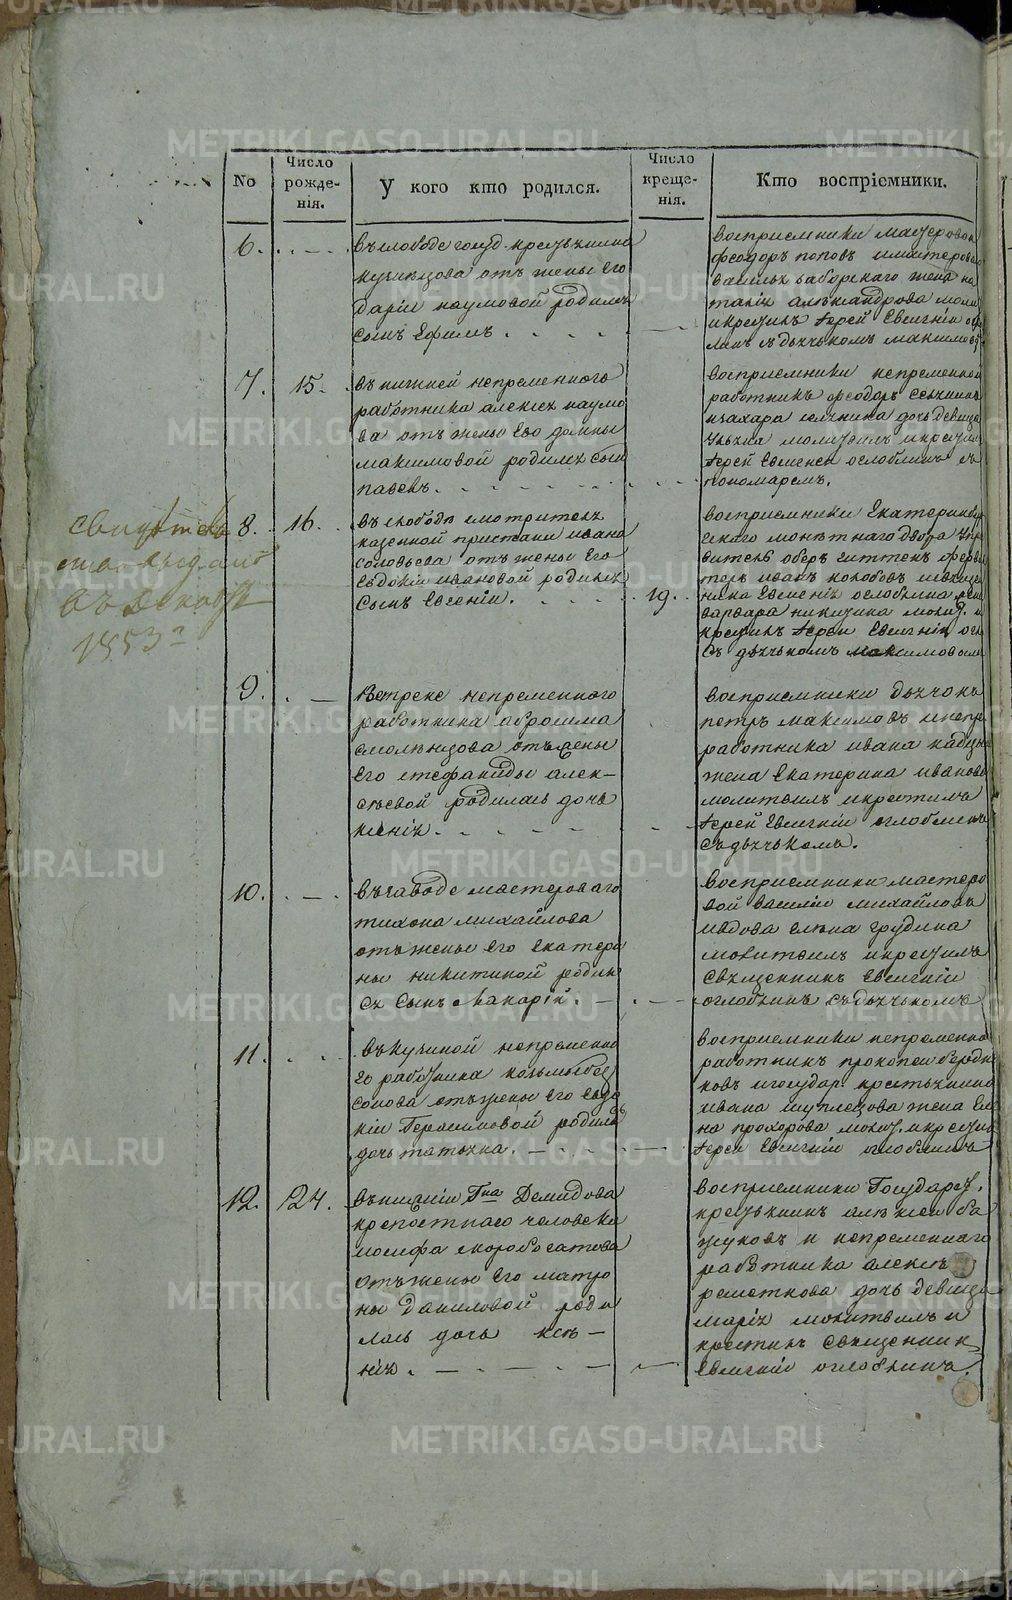 METRIKI.GASO-URAL.RU
No
Число рожде-нія.
У кого кто родился.
Число креще-нія.
Кто воспріемники.
6.
въ слободе госуд. крестьянина
кузнецова отъ жены его
Даріи наумовой родился
сынъ Ефимъ
воспріемники мастеровой
феодоръ поповъ и мастероваго
жена на
таліи александрова молит
и крестилъ Іерей Евгеній ог
лоб съ дьячькомъ максимов
7.
15.
въ нижней непременнаго
работника алексея наумо
ва отъ жены его домны
максимовой родился сынъ
павелъ
воспріемники непременной
работникъ феодоръ
и захара дочь девица
молитвилъ и крестил
Іерей Евгеней оглоблинъ съ
пономаремъ.
Свидетель
ство выдано
въ Декабре
1853 г
8.
16.
въ слободе смотрителя
казенной пристани ивана
соловьева отъ жены его
Евдокіи ивановой родился
сынъ Евгеній.
19.
воспріемники Екатеринбур
скаго монетнаго двора упра
витель оберъ гиттенъ ферва
теръ иванъ колобовъ и священ
ника Евгенія оглоблина жена
варвара никитина молит. и
крестилъ Іерей Евгеній огл
съ дьячькомъ максимовымъ
9.
непременнаго
работника абросима
смоленцова отъ жены
его стефаниды алек-
сеевой родилась дочь
ксенія
воспріемники дьячокъ
петръ максимовъ и непр
работника ивана
жена Екатерина иванова
молитвилъ и крестилъ
Іерей Евгеній оглоблинъ
съ дьячькомъ.
10.
въ заводе мастероваго
тихона михайлова
отъ жены его Екатери
ны никитиной родил
ся сынъ Макарій.
воспріемники мастеро
вой василій михайловъ
и вдова елена грудина
молитвилъ и крестилъ
священникъ Евгеній
оглоблинъ съ дьячькомъ
11.
въ кузиной непременна
го работника козьмы бес
сонова отъ жены его Евдо
кіи Герасимовой родилась
дочь татьяна.
воспріемники непременной
работникъ прокопей бородни
ковъ и государ. крестьянина
ивана шулепова жена Еле
на прохорова молит. и крестилъ
Іерей Евгеній оглоблинъ
12.
24.
въ имѣніи Гна Демидова
крепостнаго человека
іосифа скоробогатова
отъ жены его матро
ны даниловой роди
лась дочь ксе-
нія.
воспріемники Государст.
крестьянинъ алексей ба
жуковъ и непременнаго
работника алексея
реметкова дочь девица
марія молитвилъ и
крестилъ священник
Евгеній оглоблинъ.